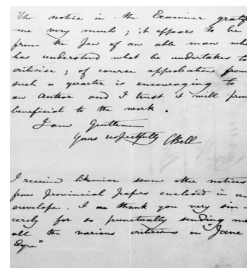 The notice in the Examiner gratified
me very much; it appears to be
from the pen of an able man who
has understood what he undertakes to
criticise; of course approbation from
such a quarter is encouraging to
an author and I trust it will prove
beneficial to the work.
I am Gentlemen
Yours respectfully CBell
I received likewise seven other notices
from provincial papers enclosed in an
envelope. I am thank you very sin
cerely for so punctually sending me
all the various criticisms on "Jane
Eyre"